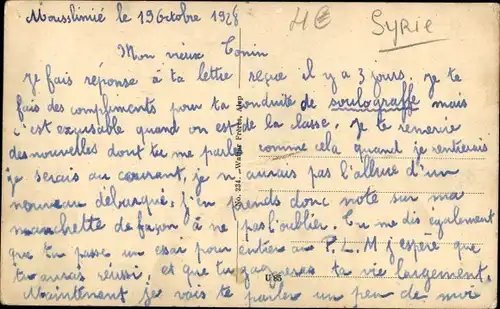 Mousslinié le 19 Octobre 1928
4€
SYRIE
Mon vieux Tonin
Je fais réponse à ta lettre reçue il y a 3 jours. Je te
fais des compliments pour ta conduite de soulograffe mais
c'est exqusable quand on est de la classe. Je te remercie
des nouvelles dont tu me parles comme cela quand je rentrerais
je serais au courant, je n'aurais pas l'allure d'un
nouveau débarqué, j'en prends donc note sur ma
manchette de façon à ne pas l'oublier. Tu me dis également
que tu passe un essai pour entrer au P.L.M j'espère que
tu auras réussi, et que tu gagneras ta vie largement.
Maintenant je vais te parler un peu de moi
No. 234. Wattar Frères, Alep
U 85